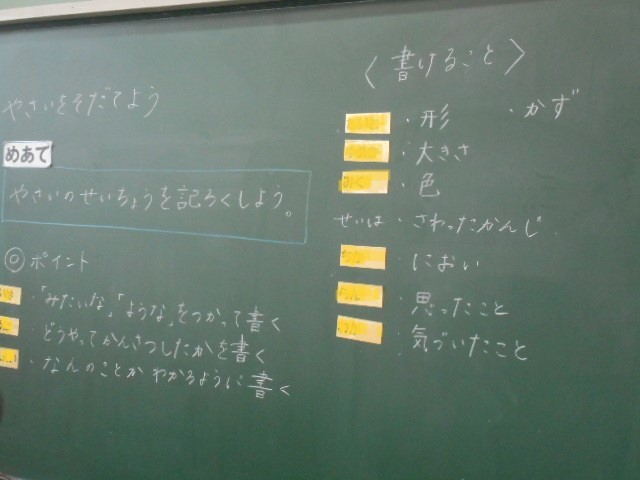 やさいをそだてよう
めあて
やさいのせいちょうを記ろくしよう。
◎ポイント
・「みたいな」「ような」をつかって書く
・どうやってかんさつしたかを書く
・なんのことかわかるように書く
〈書けること〉
・形 ・かず
・大きさ
・色
せいは・さわったかんじ
・におい
・思ったこと
・気づいたこと